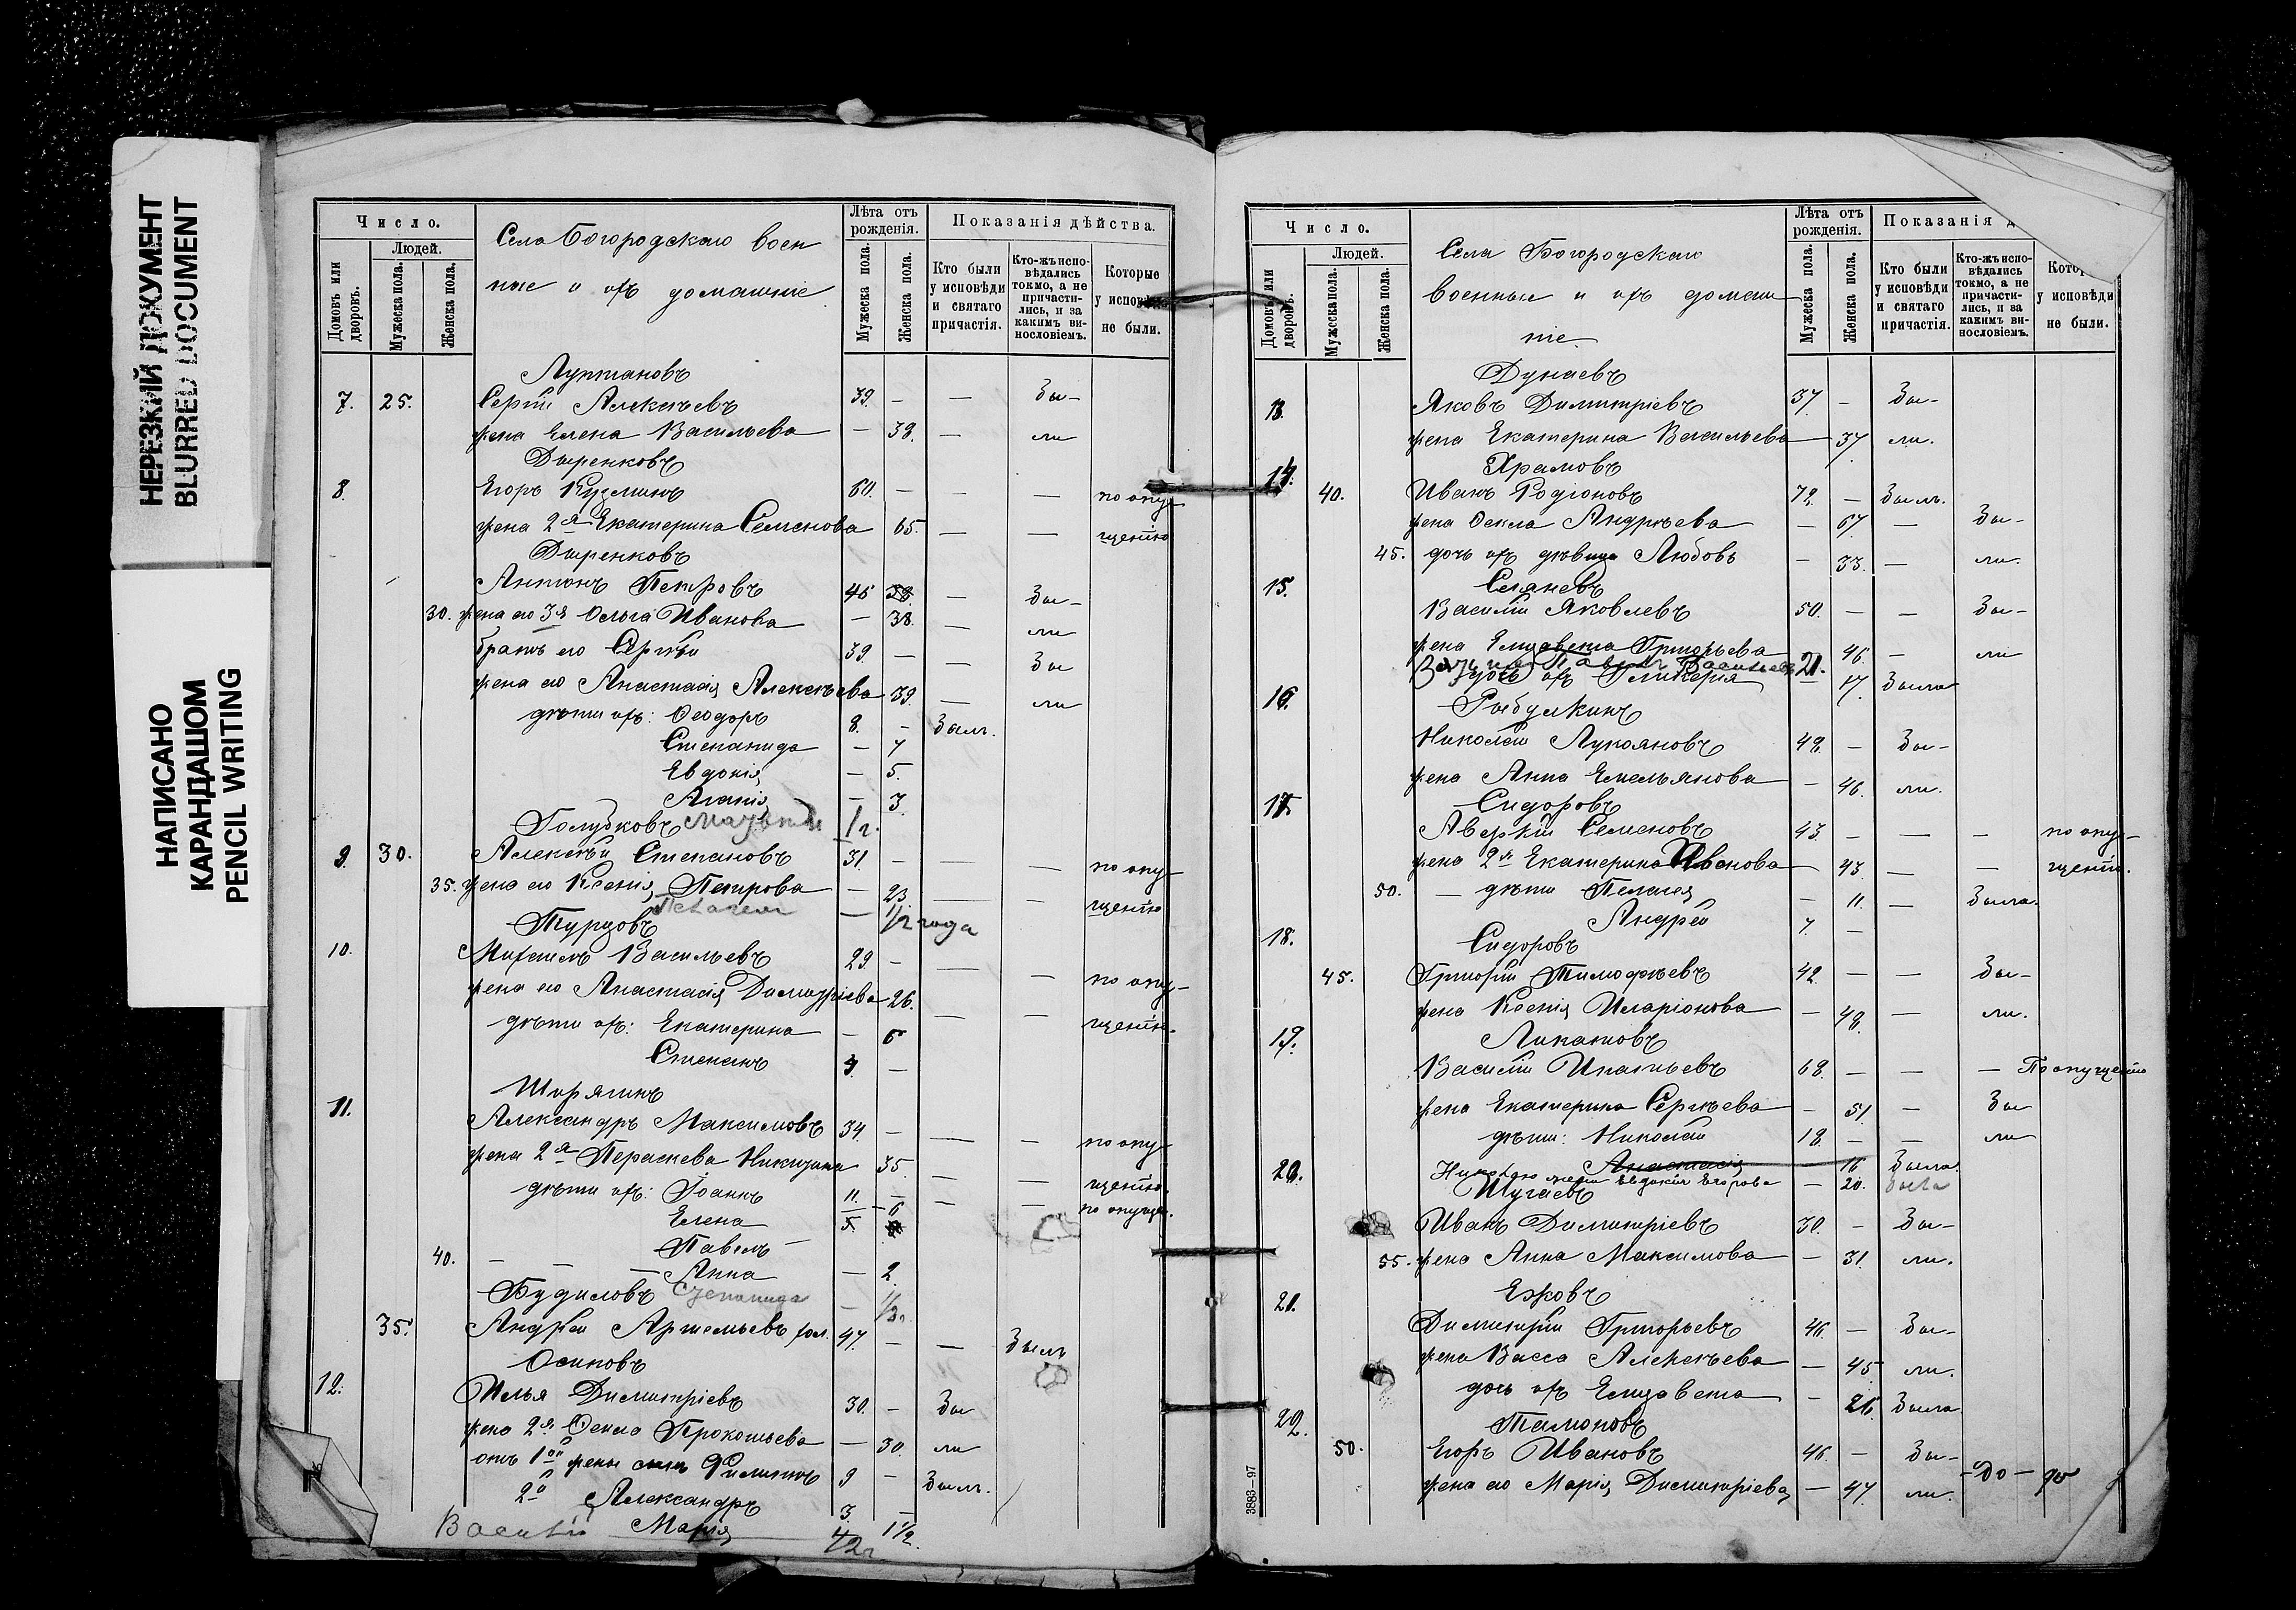 НЕРЕЗКИЙ ДОКУМЕНТ
BLURRED DOCUMENT
НАПИСАНО
КАРАНДАШОМ
PENCIL WRITING
Число.
Людей.
Домовъ или дворовъ.
Мужеска пола.
Женска пола.
Села Богородскаго воен
ные и ихъ домашніе
Лѣта отъ рожденія.
Мужеска пола.
Женска пола.
Показанія дѣйства.
Кто были у исповѣди и святаго причастія.
Кто-жъ исповѣдались токмо, а не причастились, и за какимъ винословіемъ.
Которые у исповѣди не были.
7. 25. Сергій Алексѣевъ 39. — — бы-
жена Елена Васильева — 39. — ли
Дыренковъ
8. Егоръ Кузминъ 60. — — — по опу-
жена 2я Екатерина Семенова 65. — — щенію
Дыренковъ
Антонъ Петровъ 45 38 — бы-
30. жена его 3я Ольга Иванова — 38. — ли
братъ его Сергѣй 39. — — бы
жена его Анастасія Алексѣева 39. — ли
дѣти ихъ: Ѳеодоръ 8. — былъ.
Степанида — 7
Евдокія — 5.
Агапія — 3.
Голубковъ 1 г.
9. 30. Алексѣй Степановъ 31. — — — по опу-
35. жена его Ксенія Петрова — 23. — — щенію
Пелагея — 1/2 года
Турцовъ
10. Михаилъ Васильевъ 29. — — — по опу-
жена его Анастасія Димитріева 26. — — щенію.
дѣти ихъ: Екатерина — 6
Степанъ —
11. Александръ Максимовъ 34. — — — по опу-
жена 2я Параскева Никитина 35. — — щенію.
дѣти ихъ: Іоаннъ 11. — — — по опущен.
Елена — 6
Павелъ — 5.
40. — — — Анна — 2.
Будиловъ Степанида — 1/2 г.
35. Андрей Артемьевъ хол. 47. — — былъ
Осиповъ
12. Илья Димитріевъ 30. — бы
жена 2я Ѳекла Прокопьева — 30. ли
отъ 1ой жены сынъ Филиппъ 9 — былъ.
2й Александръ 3. —
Марія 1 1/2.
Василій 1/2 г.
Число.
Людей.
Домовъ или дворовъ.
Мужеска пола.
Женска пола.
Села Богородскаго
военные и ихъ домаш
ніе.
Лѣта отъ рожденія.
Мужеска пола.
Женска пола.
Показанія д
Кто были у исповѣди и святаго причастія.
Кто-жъ исповѣдались токмо, а не причастились, и за какимъ винословіемъ.
Котор
у исповѣди не были.
Дунаевъ
13. Яковъ Димитріевъ 37 — бы-
жена Екатерина Васильева 37. ли.
Храмовъ
14. 40. Иванъ Родіоновъ 72. — былъ.
жена Ѳекла Андреева — 67. — бы-
45. дочь ихъ дѣвица Любовь — 33. — ли.
15. Василій Яковлевъ 50. — — бы-
жена Елизавета Григорьева 46. — ли
Павелъ Васильевъ 21.
дочь ихъ Гликерія — 17. была
16. Николай Лукояновъ 48. — бы-
жена Анна Емельянова — 46. ли.
17. Сидоровъ
Аверкій Семеновъ 43. — — — по опу-
жена 2я Екатерина Иванова 43. — — щенію.
50. — дѣти Пелагея — 11. — была.
Андрей 7. —
18. Сидоровъ
45. Григорій Тимофеевъ 42. — — бы-
жена Ксенія Иларіонова — 48. — ли.
19. Липатовъ
Василій Игнатьевъ 68. — — — По опущенію
жена Екатерина Сергѣева — 51. — бы
дѣти: Николай 18. — — ли
Анастасія 16 была
жена Евдокія Егорова — 20. была
20. Шугаевъ
Иванъ Димитріевъ 30. — бы-
55. жена Анна Максимова — 31. ли.
21. Ежовъ
Димитрій Григорьевъ 46. — бы-
жена Васса Алексѣева — 45 ли.
дочь ихъ Елизавета — 26. была
22. 50. Егоръ Ивановъ 46. — бы-
жена его Марія Димитріева — 47. ли.
3883—97